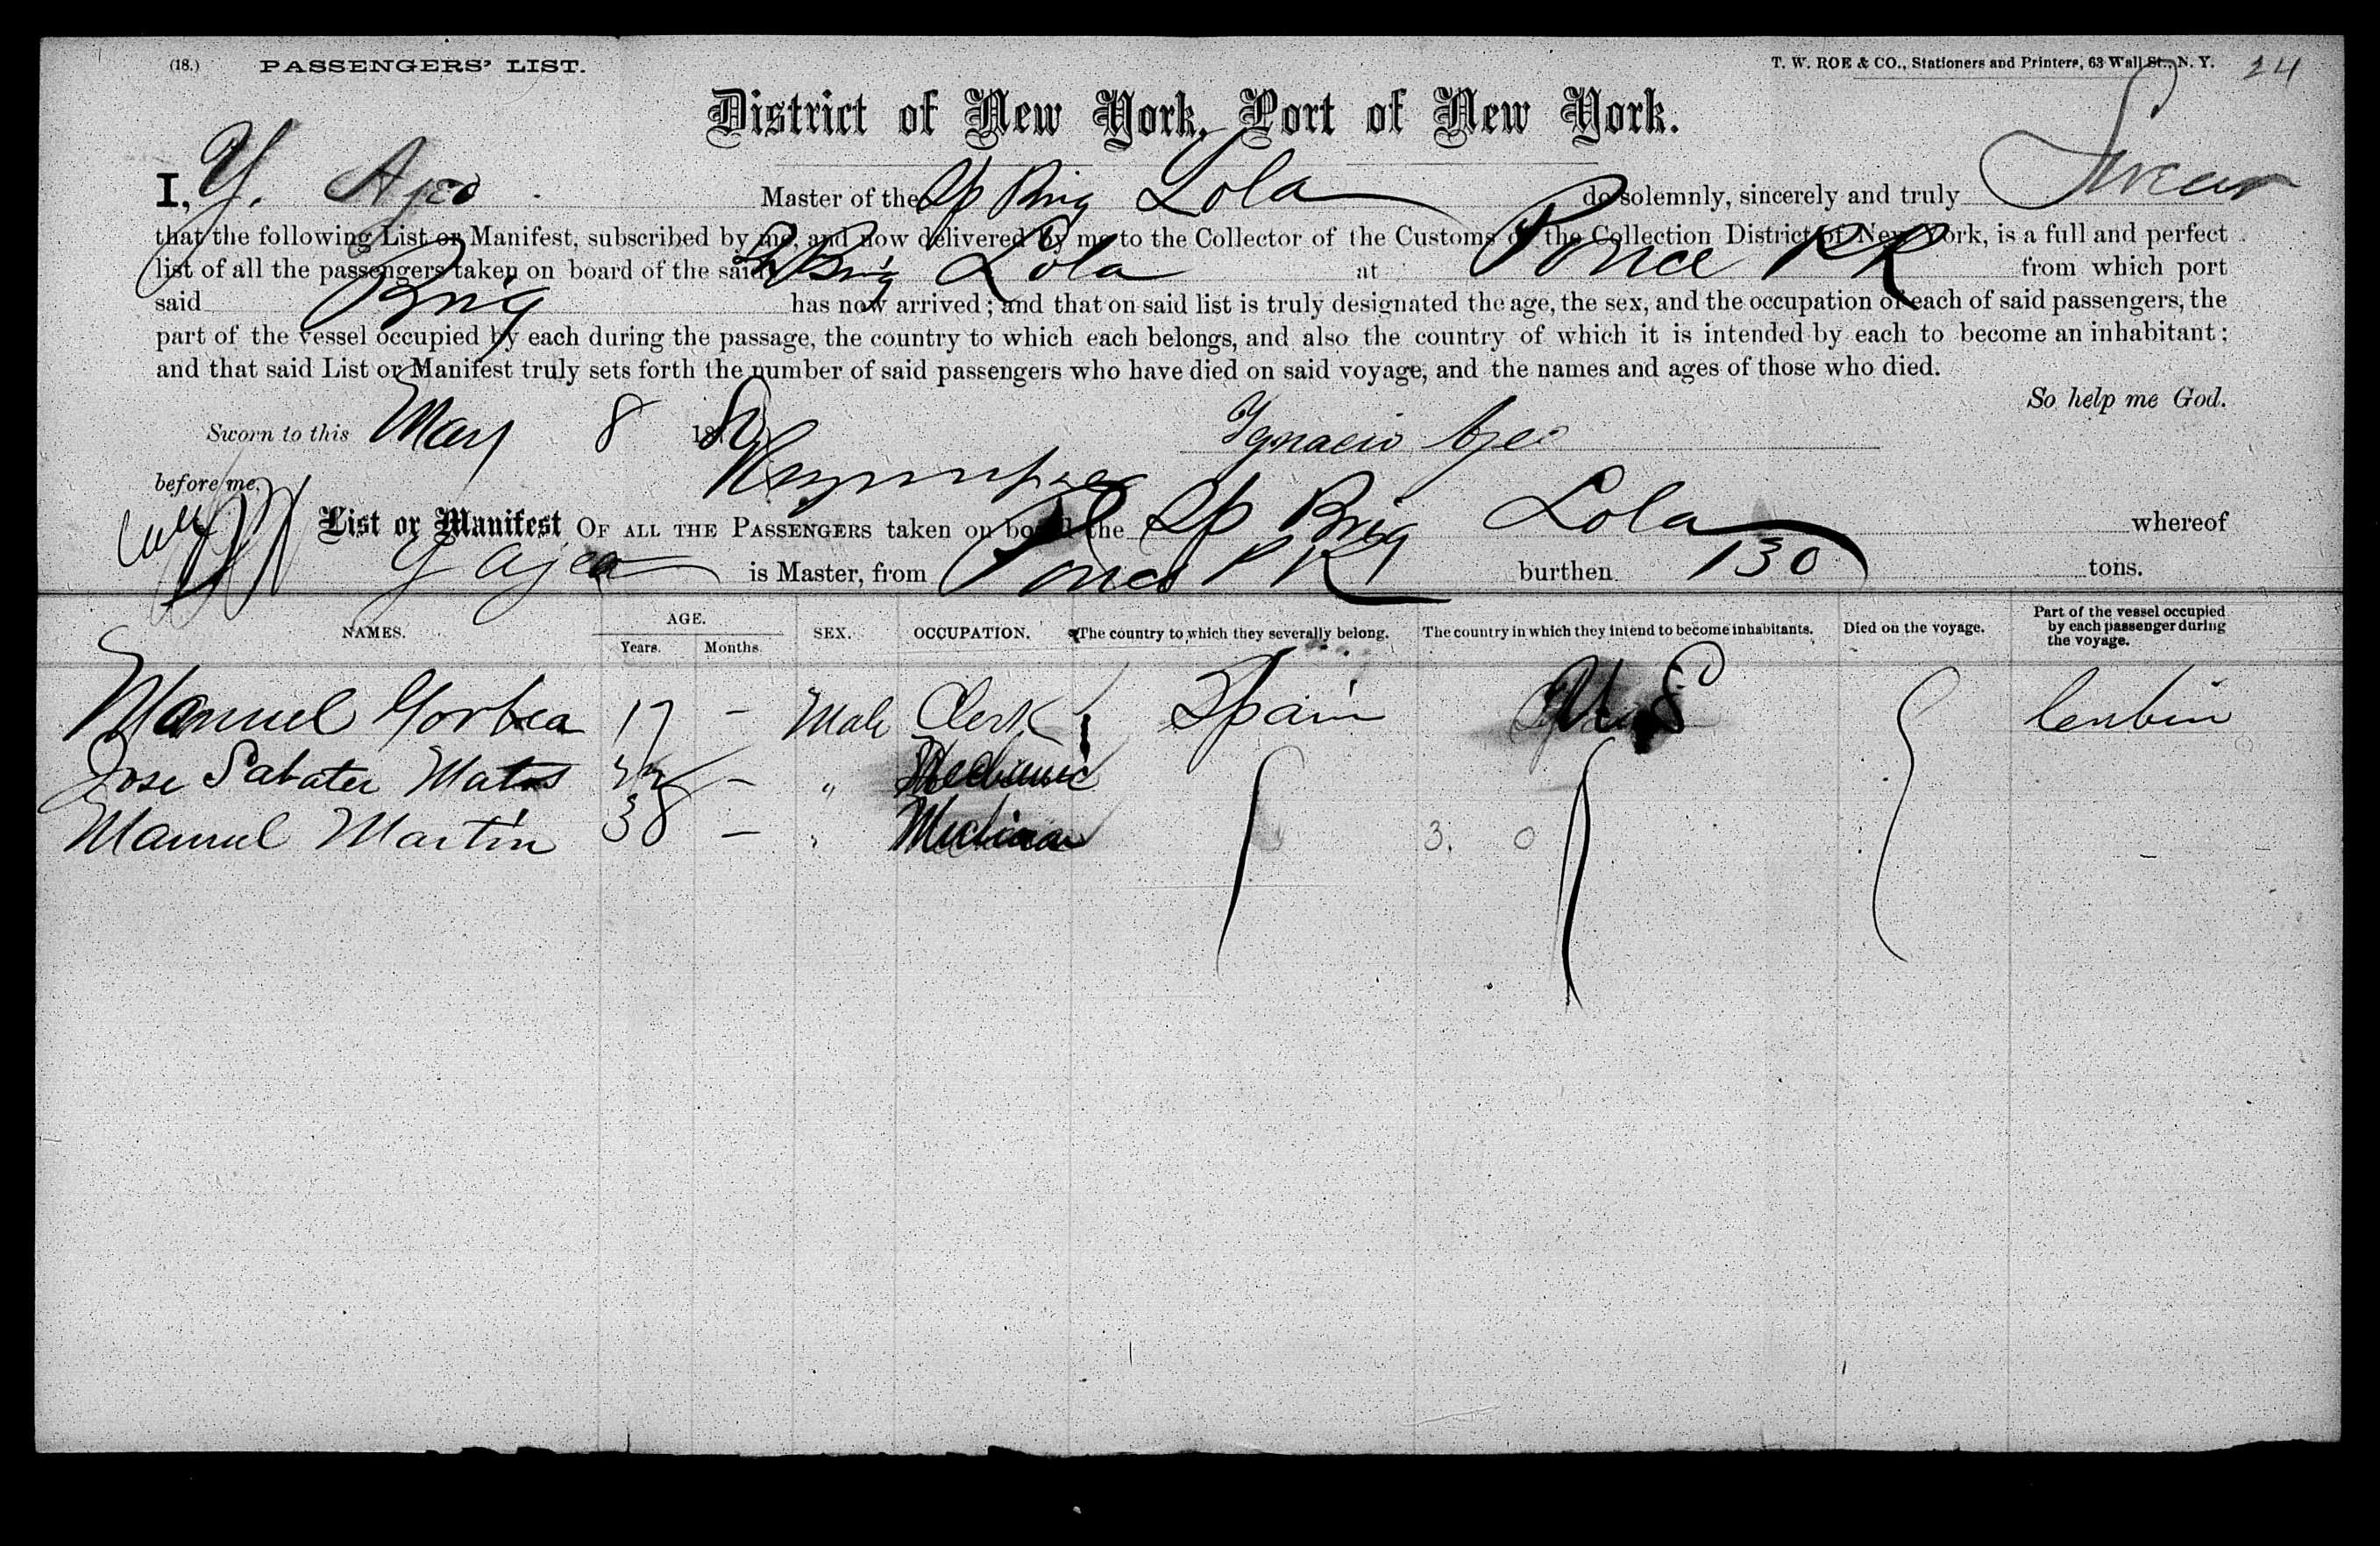 (18.) PASSENGERS' LIST. T. W. ROE & CO., Stationers and Printers, 63 Wall St., N. Y. 24
District of New York, Port of New York.
I, Y. Ajeo Master of the Sp Brig Lola do solemnly, sincerely and truly Swear
that the following List or Manifest, subscribed by me, and now delivered by me to the Collector of the Customs of the Collection District of New York, is a full and perfect
list of all the passengers taken on board of the said Sp Brig Lola at Ponce P R from which port
said Brig has now arrived; and that on said list is truly designated the age, the sex, and the occupation of each of said passengers, the
part of the vessel occupied by each during the passage, the country to which each belongs, and also the country of which it is intended by each to become an inhabitant;
and that said List or Manifest truly sets forth the number of said passengers who have died on said voyage, and the names and ages of those who died.
So help me God.
Sworn to this May 8 18 Ygnacio Ajeo
before me,
List or Manifest OF ALL THE PASSENGERS taken on board the Sp Brig Lola whereof
Y Ajeo is Master, from Ponce P R burthen 130 tons.
NAMES. AGE. Years. Months. SEX. OCCUPATION. The country to which they severally belong. The country in which they intend to become inhabitants. Died on the voyage. Part of the vessel occupied by each passenger during the voyage.
Manuel Gorbea 17 - Male Clerk Spain U S Cabin
Jose Sabater Matos - " Mechanic
Manuel Martin 38 - "
3. 0